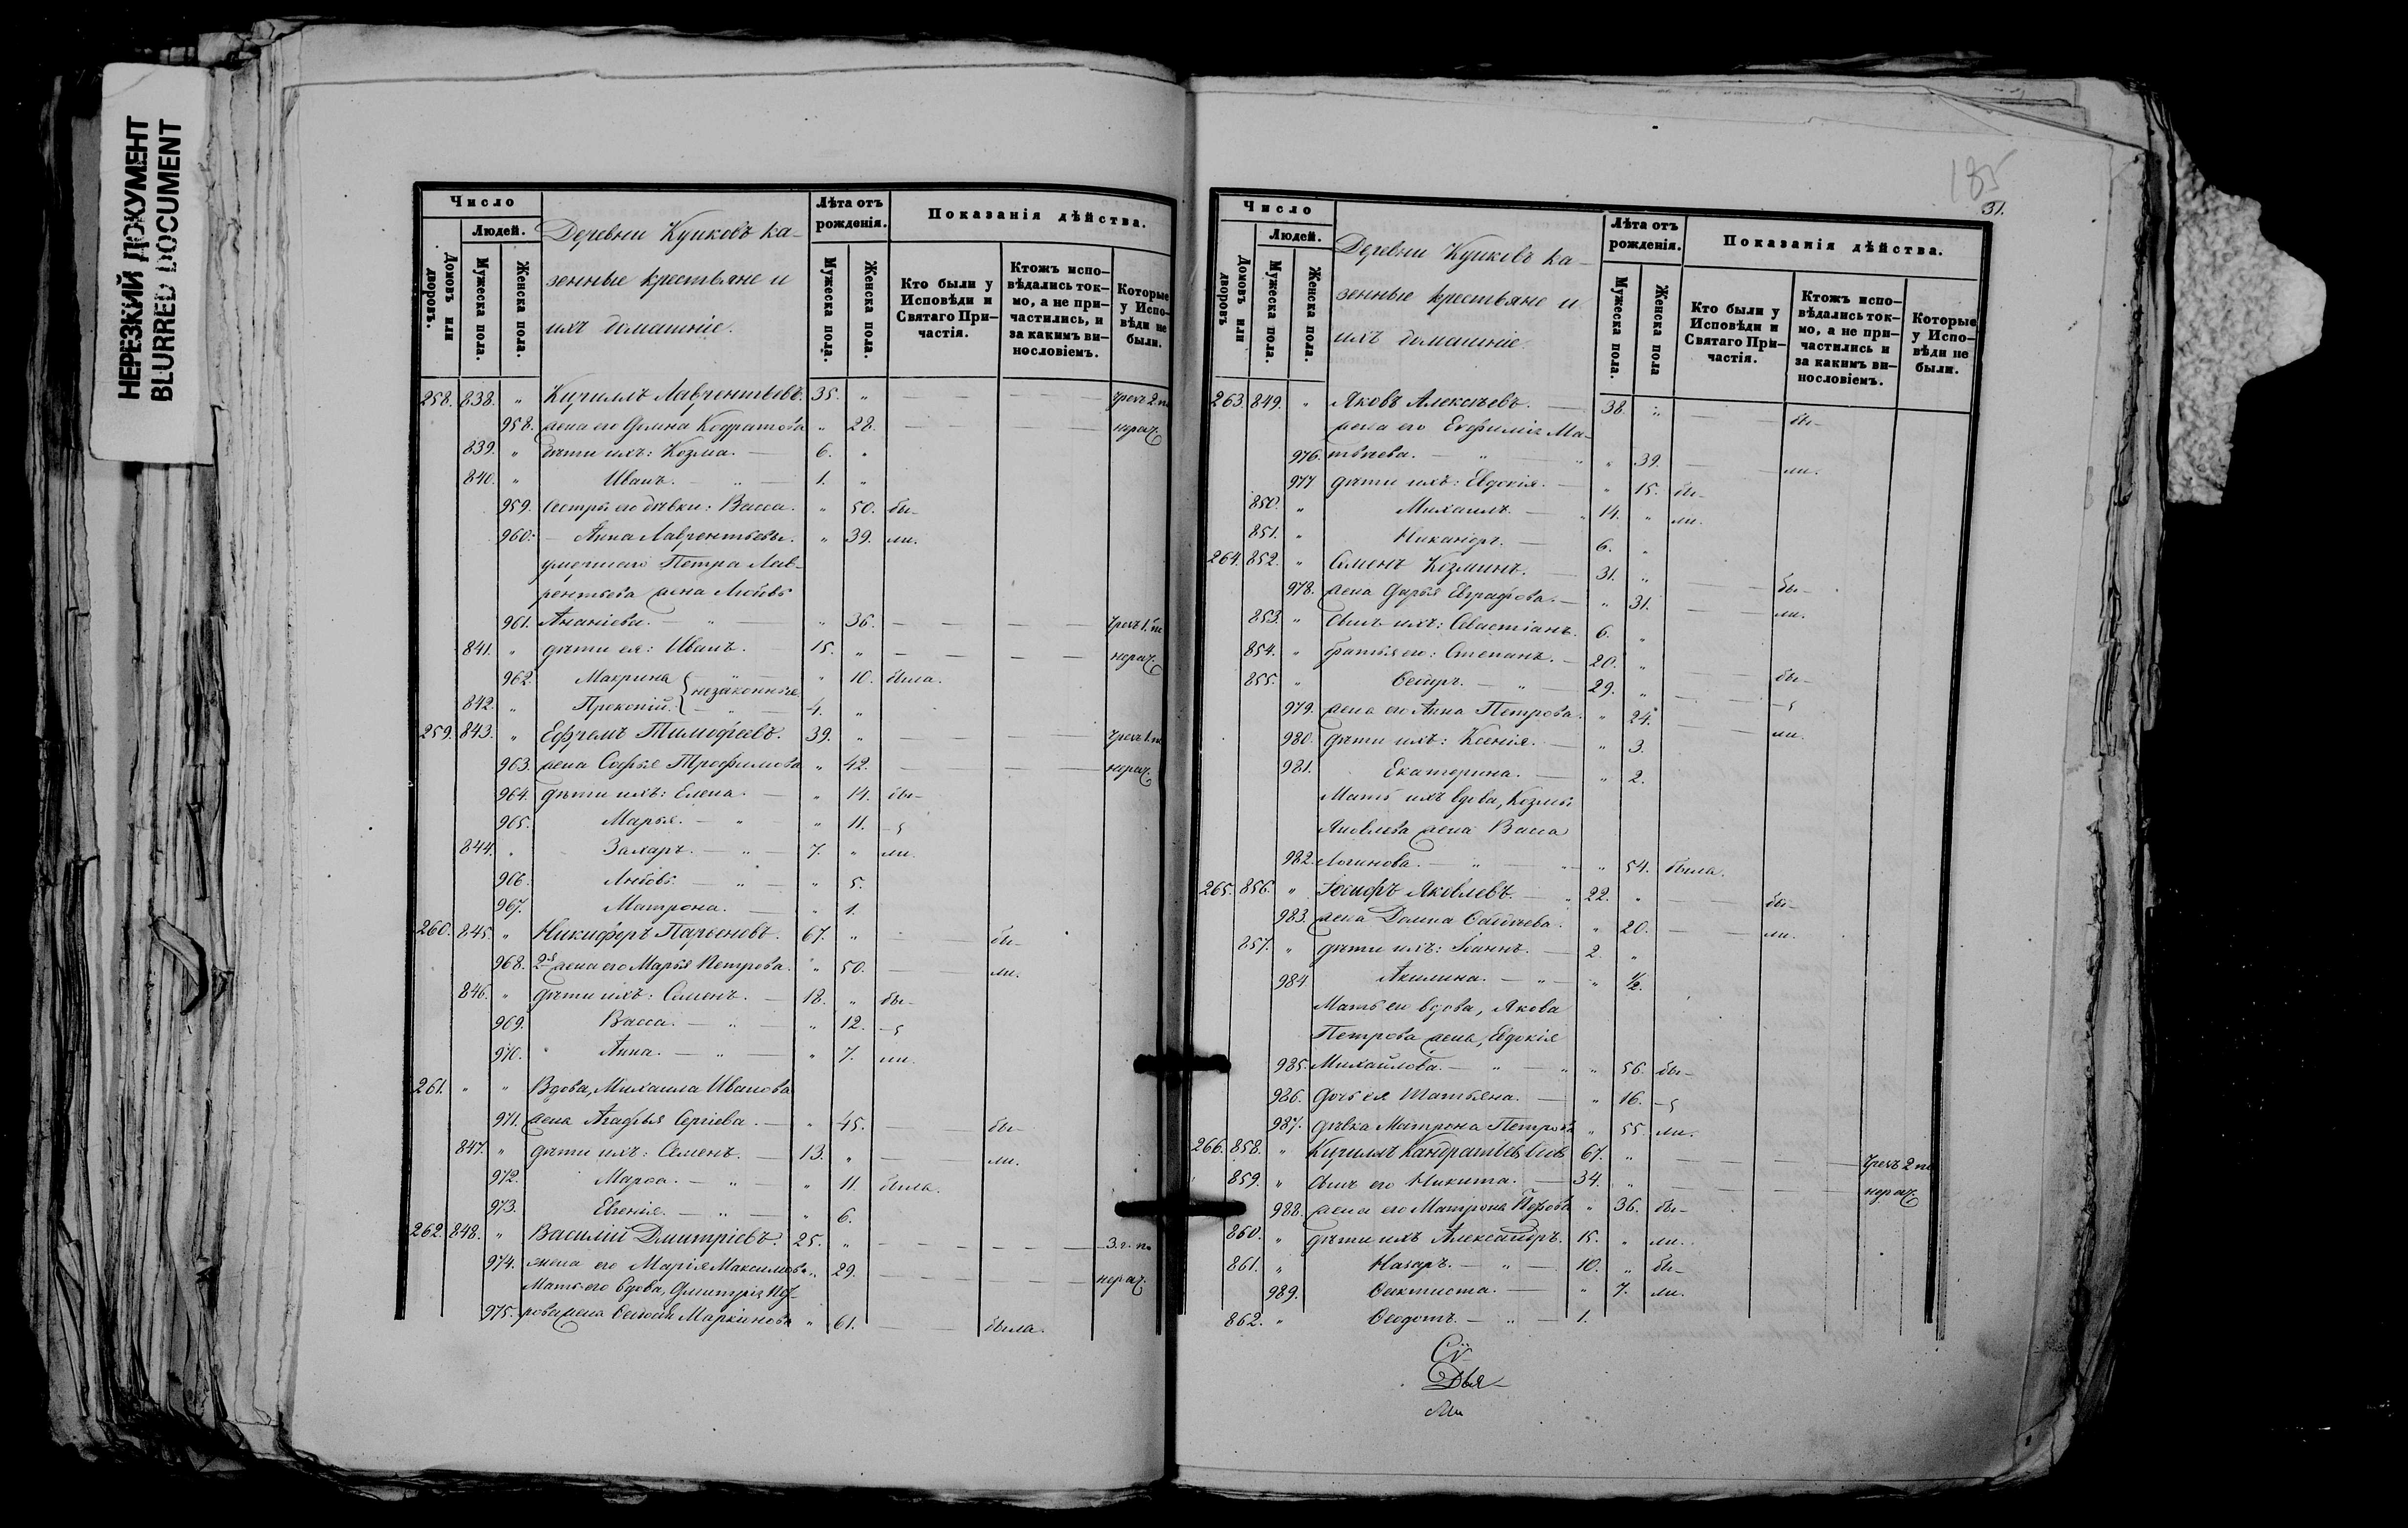 НЕРЕЗКИЙ ДОКУМЕНТ
BLURRED DOCUMENT
Число
Людей.
Домовъ или дворовъ.
Мужеска пола.
Женска пола.
Деревни Куиковъ ка-
зенные крестьяне и
ихъ домашніе.
Лѣта отъ рожденія.
Мужеска пола.
Женска пола.
Показанія дѣйства.
Кто были у Исповѣди и Святаго При-частія.
Ктожъ испо-вѣдались ток-мо, а не при-частились, и за какимъ ви-нословіемъ.
Которые у Испо-вѣди не были.
258. 838. " Кириллъ Лаврентьевъ. 35. "
958. жена его Домна Кодратова " 28. — — нерач.
839. " дѣти ихъ: Козма. — 6. "
840. " Иванъ. — " — 1. "
959. Сестры его дѣвки: Васса. " 50. бы-
960. — Анна Лаврентьевы. " 39. ли.
умершаго Петра Лав-
рентьева жена Любовь
961. Ананіева. — " — " 36. — — — —
841. " дѣти ея: Иванъ. 15. " — — — — нерач.
962. Макрина " — " 10. была.
незаконные
842. " Прокопій. — " — 4. "
259. 843. " Ефремъ Тимофѣевъ. 39. " — — — —
963. жена Софья Трофимова " 42. — — нерач.
964. дѣти ихъ: Елена. — " 14. бы-
965. Марья. — " — " 11. —
844. " Захаръ. — " — 7. " ли.
966. Любовь. — " — " 5.
967. Матрона. — " 1.
260. 845. " Никифоръ Парѳеновъ. 67. " — — бы-
968. 2я жена его Марья Петрова. " 50. — ли.
846. " дѣти ихъ: Семенъ. — 18. " бы-
969. Васса. — " — " 12. —
970. Анна. — " — " 7. ли.
261. " " Вдова, Михаила Иванова
971. жена Агафья Сергіева. — " 45. — бы-
847. " дѣти ихъ: Семенъ. — 13. " — ли.
972. Марѳа. — " — " 11. была.
973. Евгенія. — " — " 6.
262. 848. " Василій Дмитріевъ. 25. " — — — — —
974. жена его Марія Максимова " 29. — — — нерач.
Мать его вдова, Дмитрія
975. жена Маркинова " 61. — — была.
185
31.
Число
Людей.
Домовъ или дворовъ
Мужеска пола.
Женска пола.
Деревни Куиковъ ка-
зенные крестьяне и
ихъ домашніе.
Лѣта отъ рожденія.
Мужеска пола.
Женска пола
Показанія дѣйства.
Кто были у Исповѣди и Святаго При-частія.
Ктожъ испо-вѣдались ток-мо, а не при-частились и за какимъ ви-нословіемъ.
Которые у Испо-вѣди не были.
263. 849. " Яковъ Алексѣевъ. — 38. " — — бы-
жена его Евфимія Ма-
976. твѣева. — " — " " 39. — ли.
977 дѣти ихъ: Евдокія. — " 15. бы-
850. " Михаилъ. — " 14. " ли.
851. " Никаноръ. — 6. "
264. 852. " Семенъ Козминъ. — 31. " — — бы-
978. жена Дарья Евграфова. — " 31. — — ли.
853. " Сынъ ихъ: Севастіанъ. 6. "
854. " братья его: Степанъ. — 20. " — бы-
855. " Ѳедоръ. — " — 29. " — — —
979. жена его Анна Петрова. " 24. — ли.
980. дѣти ихъ: Ксенія. — " 3.
981. Екатерина. — " 2.
Мать ихъ вдова, Козмы
Яковлева жена Васса
982. Логинова. — " — " — " 54. была.
265. 856. " Іосифъ Яковлевъ. — " 22. " — — бы-
983. жена Домна — " 20. — — ли.
857. " дѣти ихъ: Іоаннъ. — 2. "
984 Акилина. — " — " ½.
Мать его вдова, Якова
Петрова жена, Евдокія
985. Михайлова. — " — " " 56. бы-
986. дочь ея Татьяна. — " 16. —
987. дѣвка Матрона Петрова " 55. ли.
266. 858. " Кириллъ 67. " — — — —
859. " Сынъ его Никита. — 34. " — — — — нерач.
988. жена его Матрона " 36. бы-
860. " дѣти ихъ Александръ. 15. " ли.
861. " Назаръ. — " — 10. " бы-
989. Ѳеоктиста. — " 7. ли.
862. " Ѳеодотъ. — " — 1.